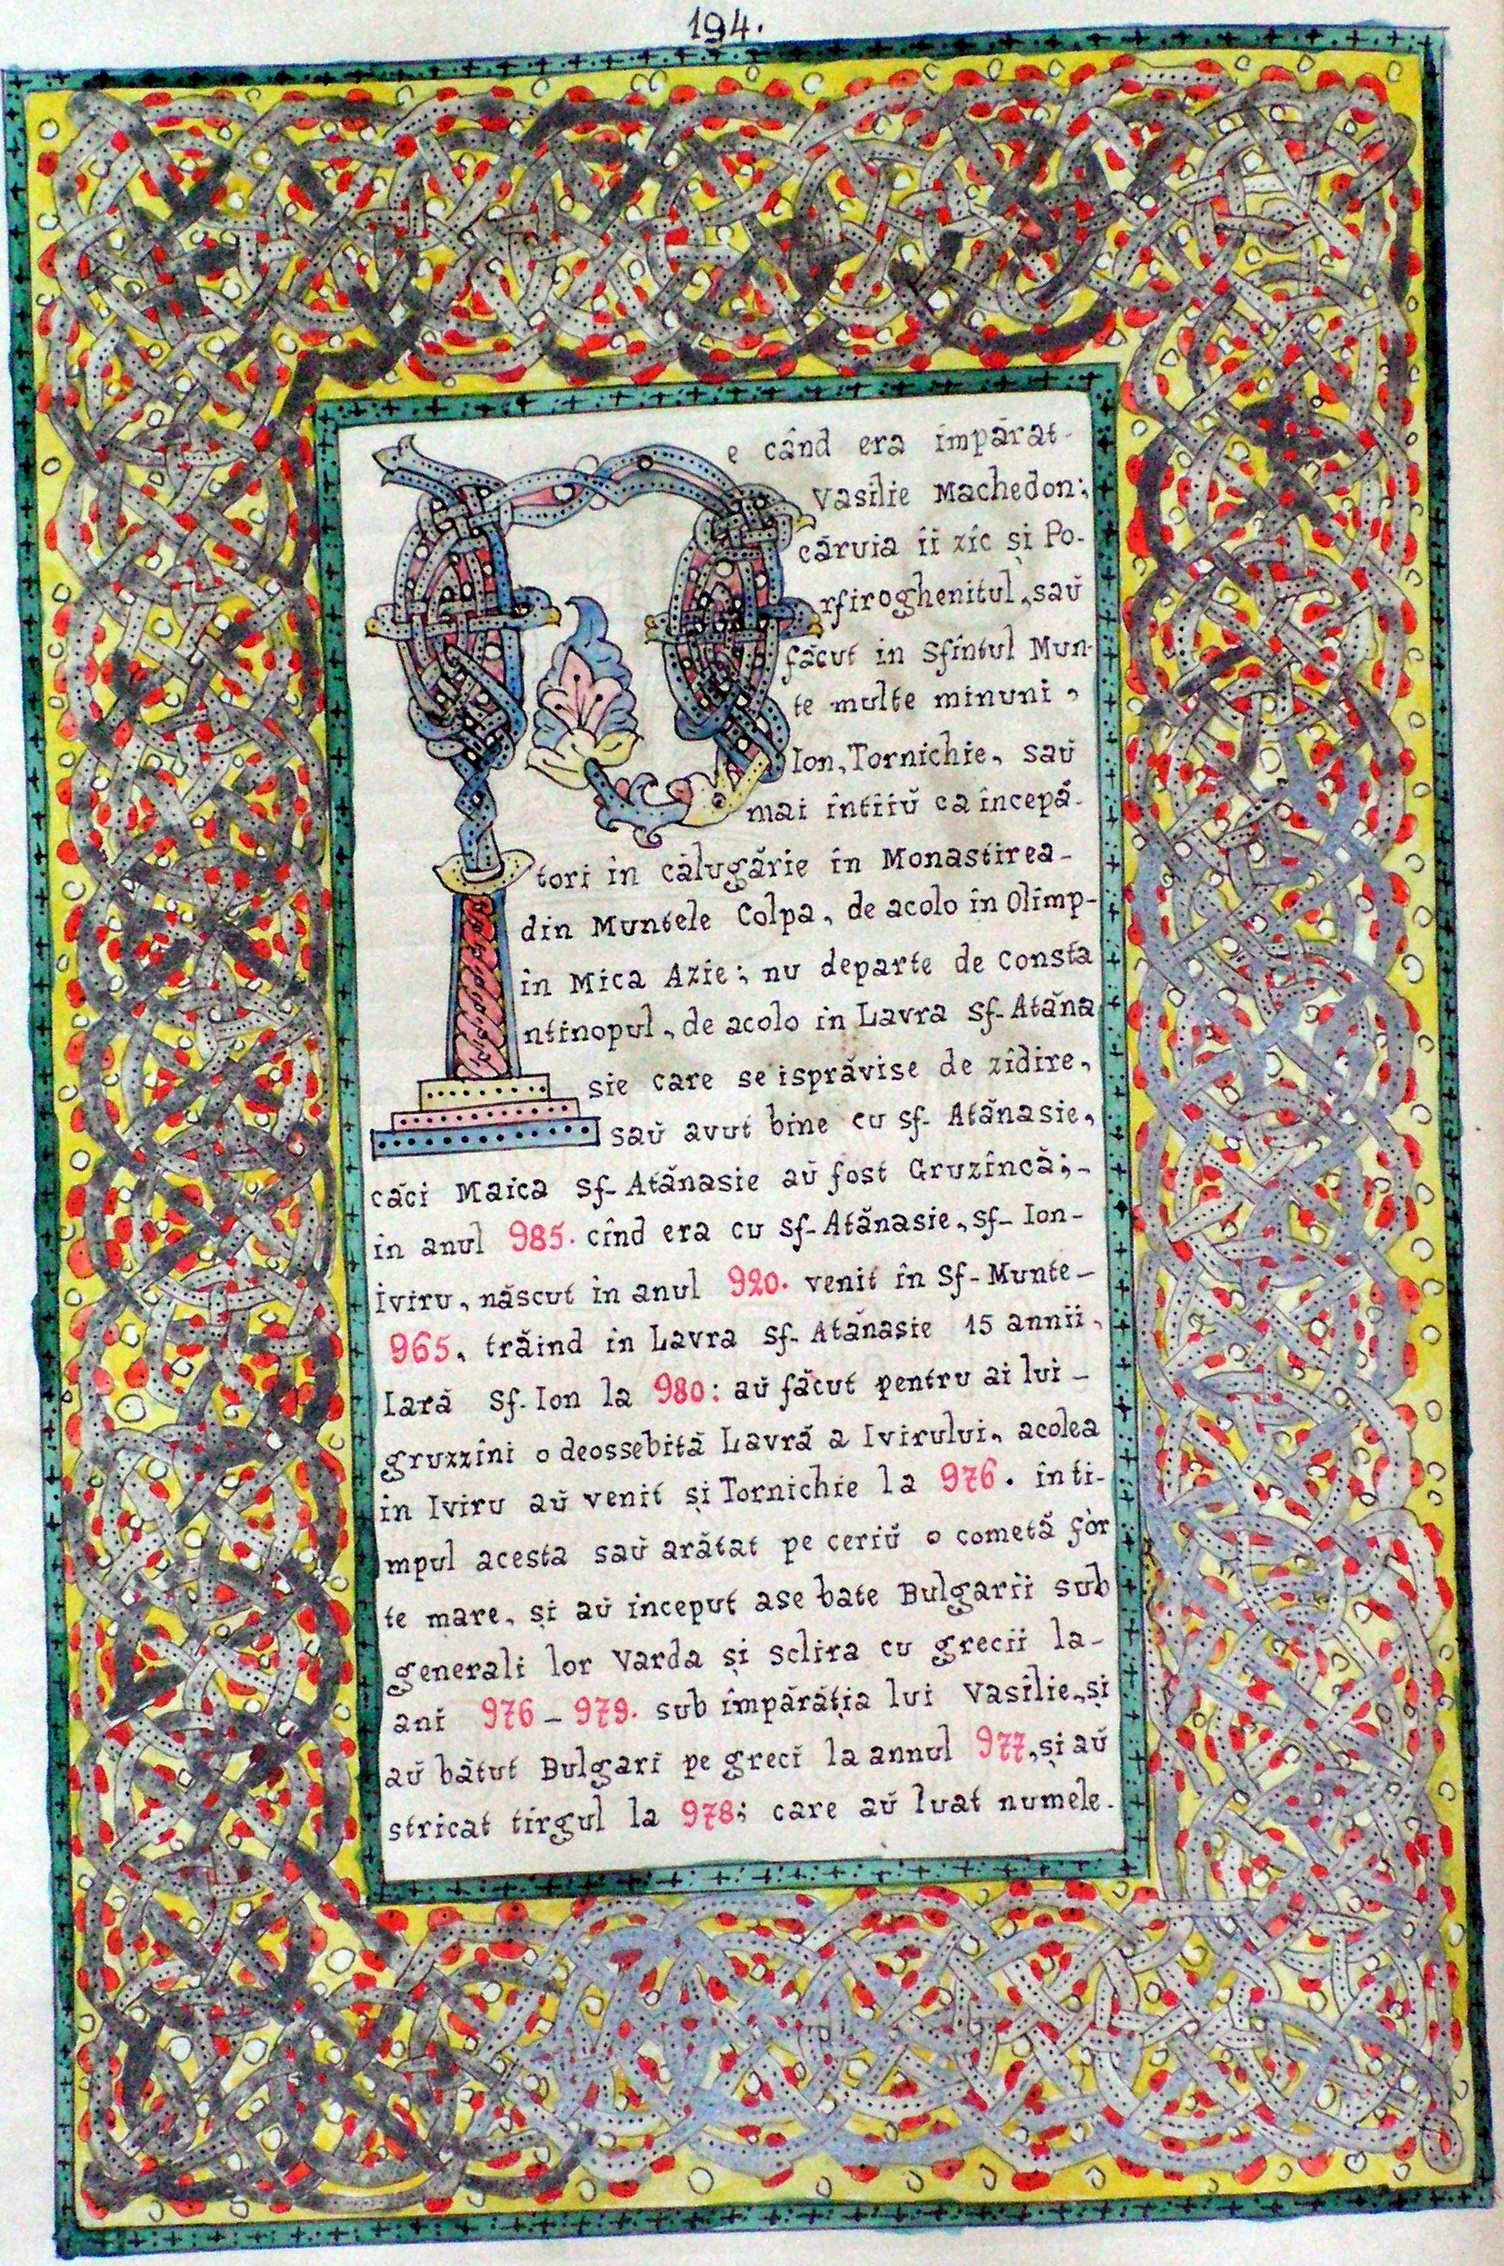 194.
Pe când era împărat-
Vasilie Machedon;
căruia îi zîc și Po-
rfiroghenitul, saŭ
făcut in Sfîntul Mun-
te multe minuni,
Ion, Tornichie, saŭ
mai întîiŭ ca începă-
tori în călugărie în Monastirea-
din Muntele Colpa, de acolo in Olimp-
în Mica Azie; nu departe de Consta
ntinopul, de acolo in Lavra Sf- Atăna
sie care se isprăvise de zîdire,
saŭ avut bine cu Sf- Atănasie,
căci Maica Sf- Atănasie aŭ fost Gruzîncă;-
in anul 985. cînd era cu Sf- Atănasie, Sf- Ion-
Iviru, născut in anul 920. venit în Sf- Munte-
965, trăind in Lavra Sf- Atănasie 15 annii,
Iară Sf- Ion la 980: aŭ făcut pentru ai lui-
gruzzîni o deossebită Lavră a Ivirului, acolea
in Iviru aŭ venit și Tornichie la 976. în ti-
mpul acesta saŭ arătat pe ceriŭ o cometă for
te mare, și aŭ inceput ase bate Bulgarii sub
generali lor Varda și Sclira cu grecii la-
ani 976-979. sub împărăția lui Vasilie, și
aŭ bătut Bulgari pe greci la annul 977, și aŭ
stricat tirgul la 978; care aŭ luat numele.